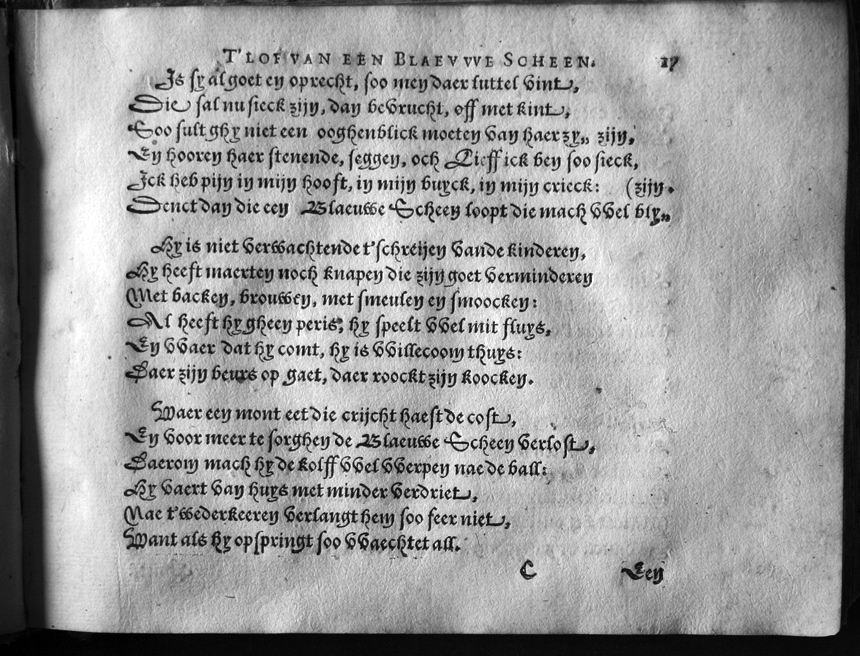 T'LOF VAN EEN BLAEVVVE SCHEEN. 17
Is sy al goet en oprecht, soo men daer luttel vint,
Die sal nu sieck zijn, dan bevrucht, off met kint,
Soo sult ghy niet een ooghenblick moeten van haer zy„ zijn,
En hooren haer stenende, seggen, och Lieff ick ben soo sieck,
Ick heb pijn in mijn hooft, in mijn buyck, in mijn crieck: (zijn.
Denct dan die een Blaeuwe Scheen loopt die mach vvel bly„
Hy is niet verwachtende t'schreijen vande kinderen,
Hy heeft maerten noch knapen die zijn goet verminderen
Met backen, brouwen, met smeulen en smoocken:
Al heeft hy gheen peris, hy speelt vvel mit fluys,
En vvaer dat hy comt, hy is vvillecoom thuys:
Daer zijn beurs op gaet, daer roockt zijn koocken.
Waer een mont eet die crijcht haest de cost,
En voor meer te sorghen de Blaeuwe Scheen verlost,
Daerom mach hy de kolff vvel vverpen nae de ball:
Hy vaert van huys met minder verdriet,
Nae t'wederkeeren verlangt hem soo seer niet,
Want als hy opspringt soo vvaechtet all.
C Een